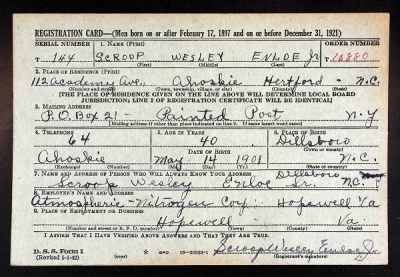 REGISTRATION CARD—(Men born on or after February 17, 1897 and on or before December 31, 1921)
SERIAL NUMBER 1. NAME (Print) ORDER NUMBER
T 144 SCROOP WESLEY ENLOE Jr T 10880
(First) (Middle) (Last)
2. PLACE OF RESIDENCE (Print)
112 Academy Ave, Ahoskie Hertford N.C.
(Number and street) (Town, township, village, or city) (County) (State)
[THE PLACE OF RESIDENCE GIVEN ON THE LINE ABOVE WILL DETERMINE LOCAL BOARD
JURISDICTION; LINE 2 OF REGISTRATION CERTIFICATE WILL BE IDENTICAL]
3. MAILING ADDRESS
P.O. Box 21 - Painted Post N.Y
[Mailing address if other than place indicated on line 2. If same insert word same]
4. TELEPHONE 5. AGE IN YEARS 6. PLACE OF BIRTH
64 40 Dillsboro
DATE OF BIRTH (Town or county)
Ahoskie May 14 1901 N.C.
(Exchange) (Number) (Mo.) (Day) (Yr.) (State or country)
7. NAME AND ADDRESS OF PERSON WHO WILL ALWAYS KNOW YOUR ADDRESS
Scroop Wesley Enloe Sr. Dillsboro NC.
8. EMPLOYER'S NAME AND ADDRESS
Atmospheric-Nitrogen Corp: Hopewell Va
9. PLACE OF EMPLOYMENT OR BUSINESS
Hopewell Va:
(Number and street or R. F. D. number) (Town) (County) (State)
I AFFIRM THAT I HAVE VERIFIED ABOVE ANSWERS AND THAT THEY ARE TRUE.
D. S. S. Form 1
(Revised 1-1-42) (over) Scroop Wesley Enloe Jr.